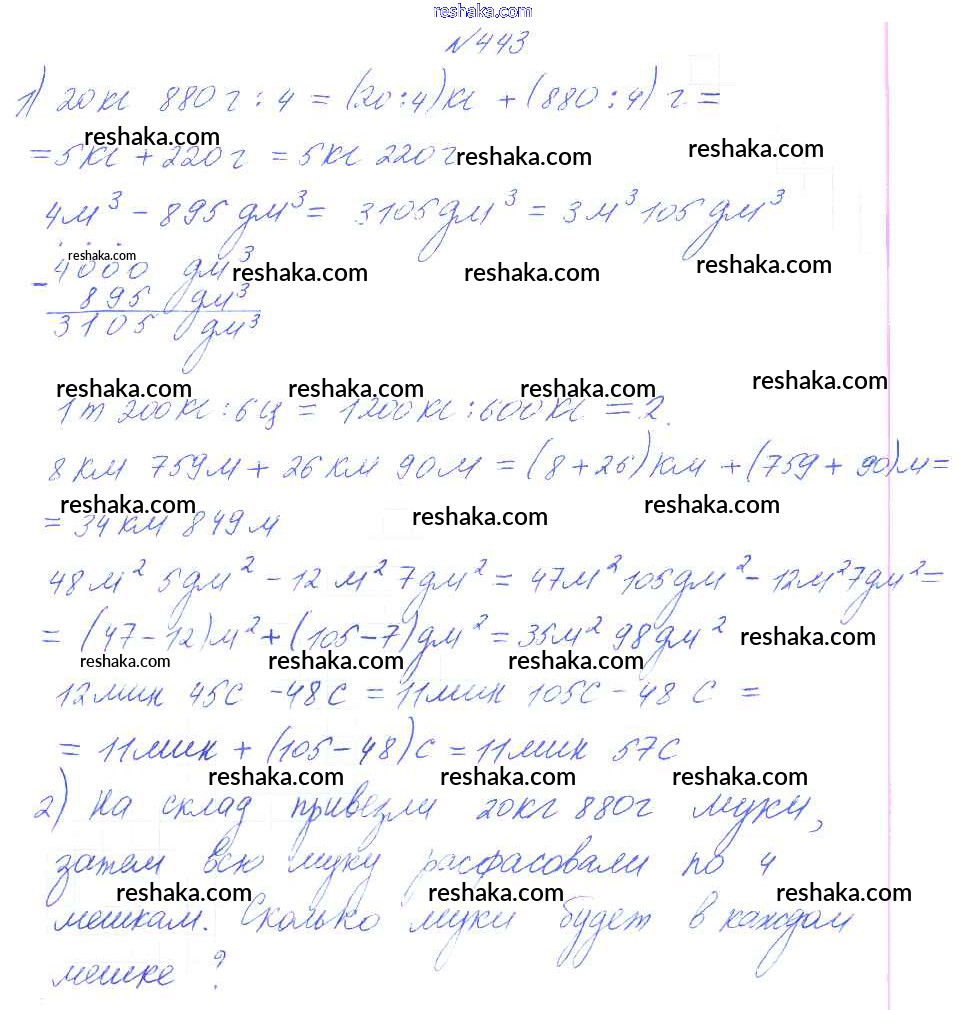 reshaka.com
№443
1) 20кг 880г : 4 = (20:4)кг + (880:4)г =
reshaka.com
= 5кг + 220г = 5кг 220г
reshaka.com reshaka.com
4м³ - 895 дм³ = 3105дм³ = 3м³ 105 дм³
reshaka.com
- 4000 дм³
reshaka.com reshaka.com reshaka.com
895 дм³
3105 дм³
reshaka.com reshaka.com reshaka.com
1т 200кг : 6ц = 1200кг : 600кг = 2.
8км 759м + 26км 90м = (8+26)км + (759+90)м =
reshaka.com reshaka.com reshaka.com
= 34км 849м
48м² 5дм² - 12м² 7дм² = 47м² 105дм² - 12м² 7дм² =
= (47-12)м² + (105-7)дм² = 35м² 98дм²
reshaka.com
reshaka.com reshaka.com reshaka.com
12мин 45с - 48с = 11мин 105с - 48 с =
= 11мин + (105-48)с = 11мин 57с
reshaka.com reshaka.com reshaka.com
2) На склад привезли 20кг 880г муки,
затем всю муку расфасовали по 4
reshaka.com reshaka.com reshaka.com
мешкам. Сколько муки будет в каждом
мешке ?